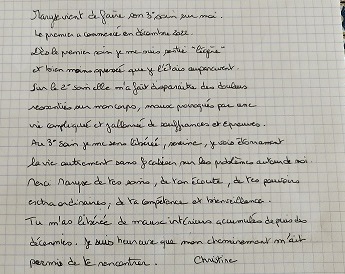 Maryse vient de faire son 3e soin sur moi.
Le premier a commencé en décembre 2022.
Dès le premier soin je me suis sentie "légère"
et bien moins oppressée que je l'étais auparavant.
Sur le 2e soin elle m'a fait disparaître des douleurs
ressenties sur mon corps, maux provoqués par une
vie compliquée et jalonnée de souffrances et épreuves.
Au 3e soin je me sens libérée, sereine, je vois dorénavant
la vie autrement sans focaliser sur les problèmes autour de moi.
Merci Maryse de tes soins, de ton écoute, de tes pouvoirs
extraordinaires, de ta compétence et bienveillance.
Tu m'as libérée de maux intérieurs accumulés depuis des
décennies. Je suis heureuse que mon cheminement m'ait
permis de te rencontrer. Christine